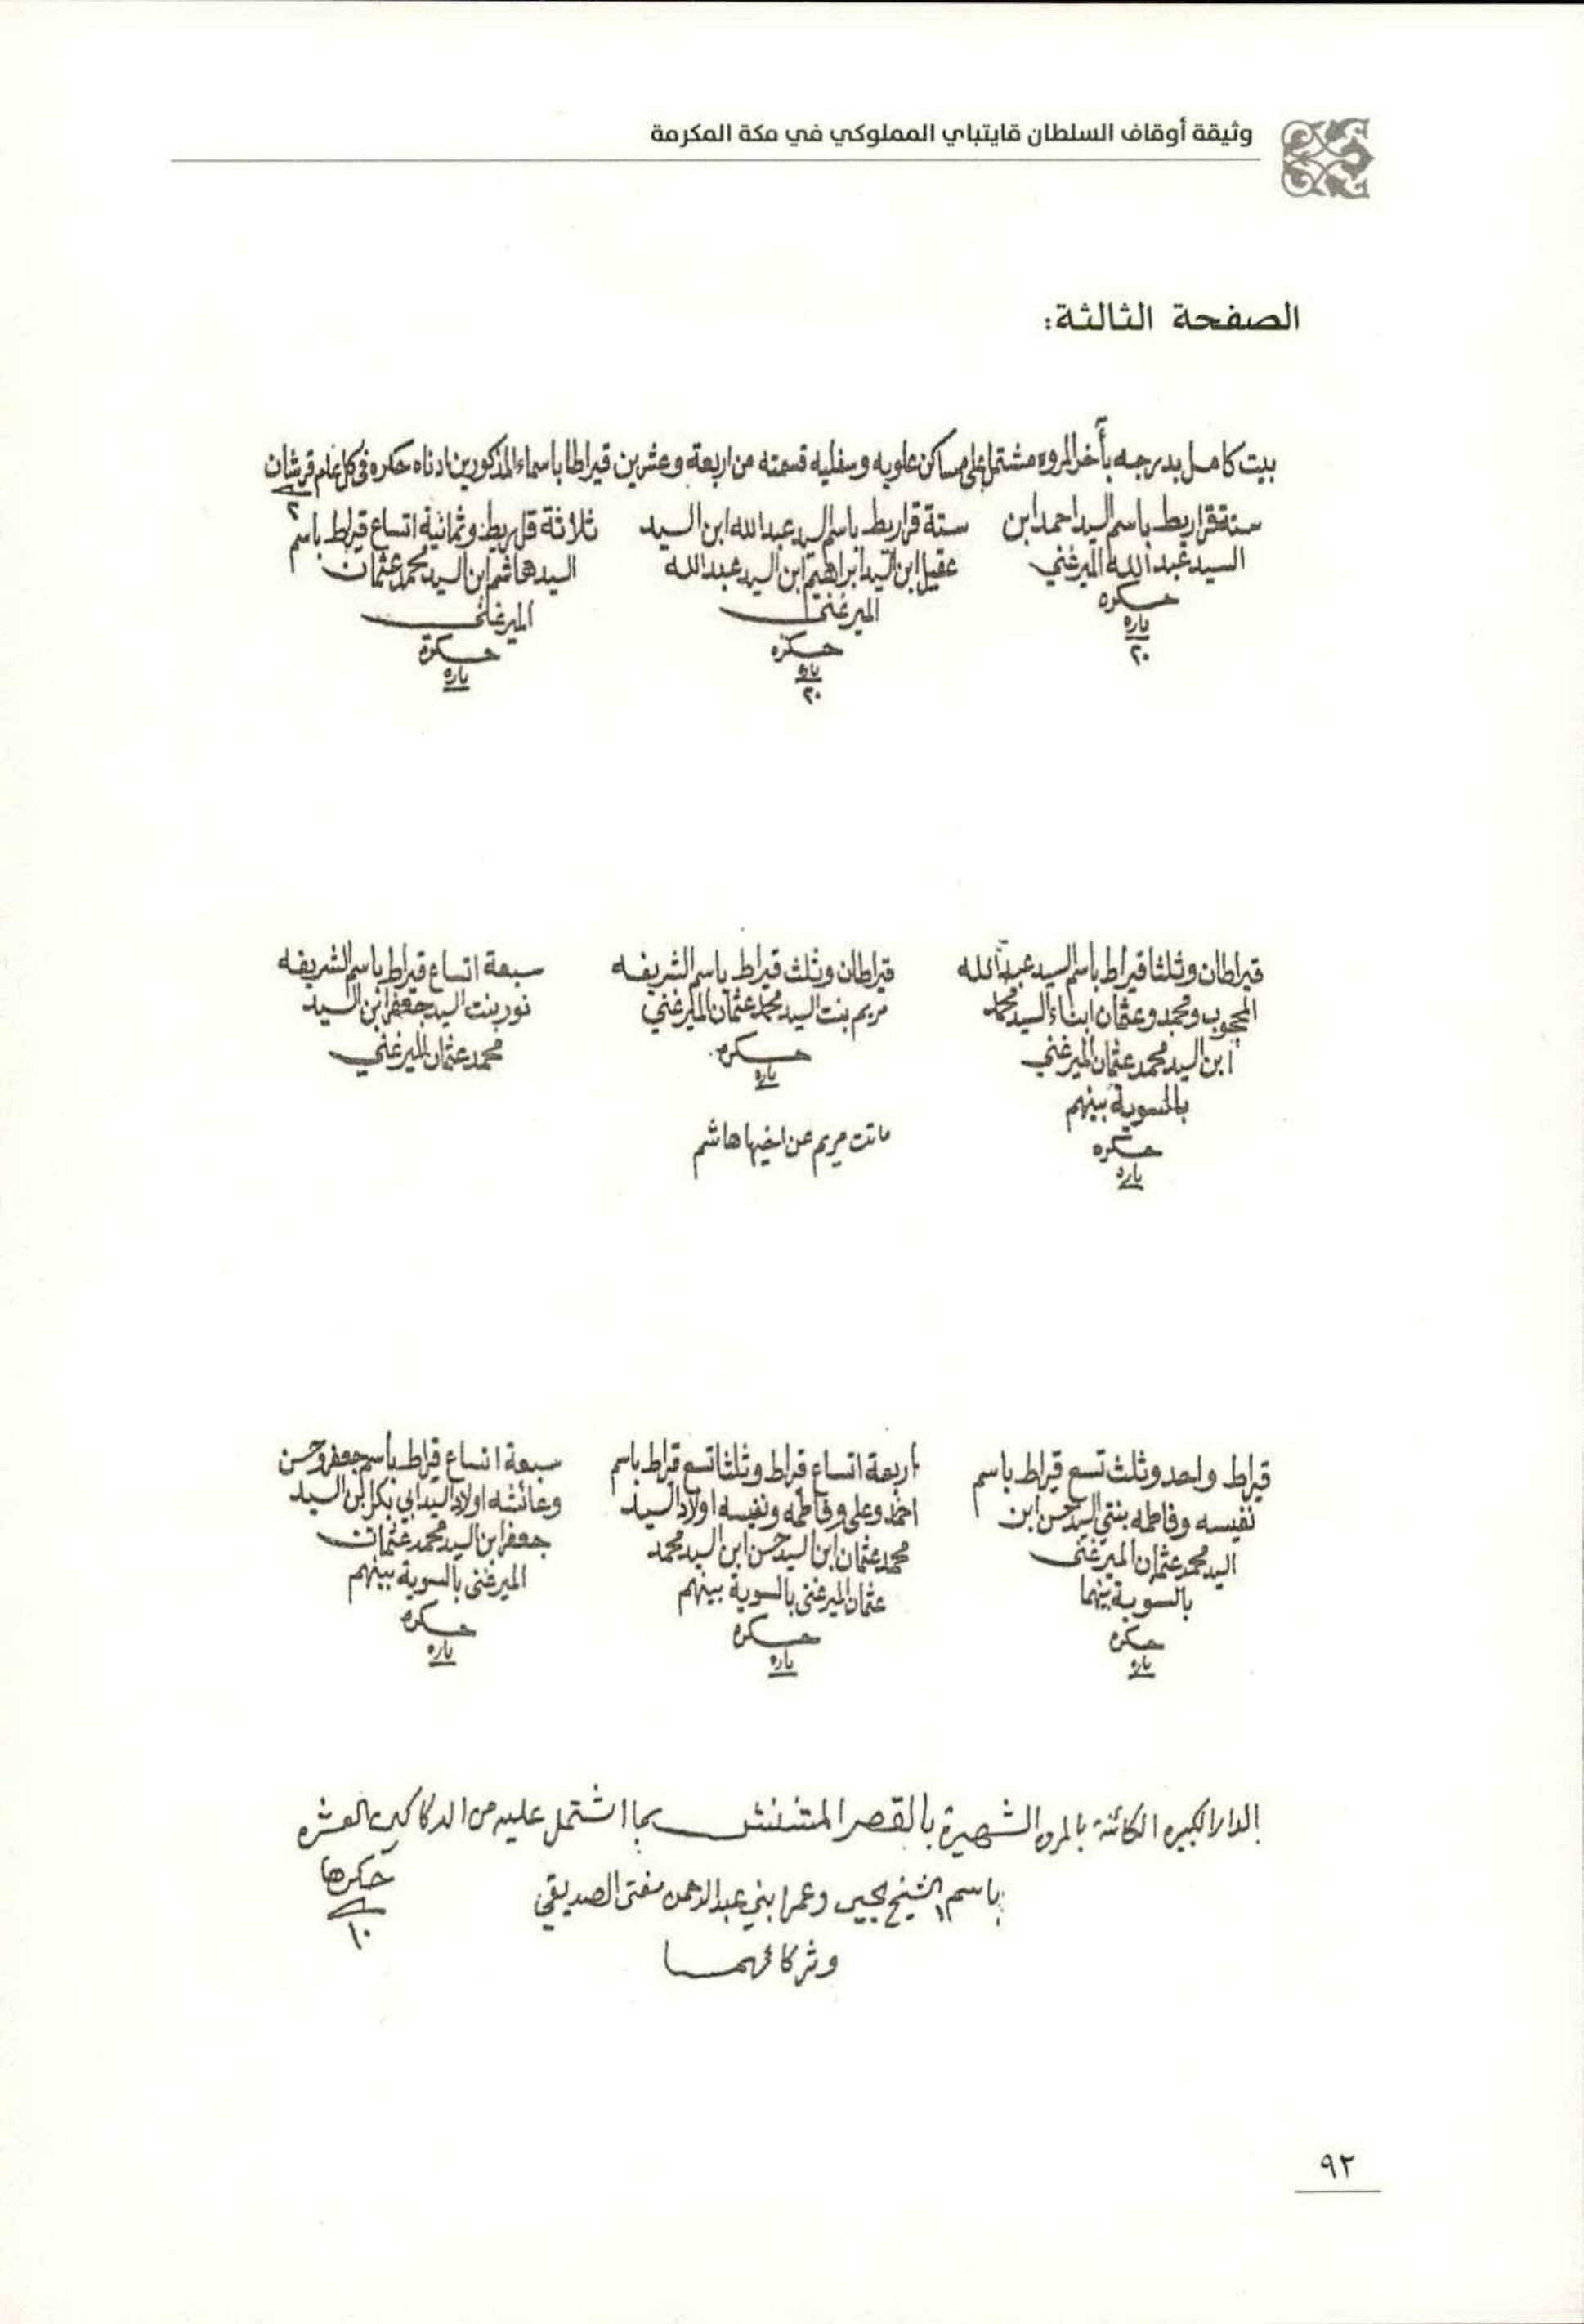 وثيقة أوقاف السلطان قايتباي المملوكي في مكة المكرمة
الصفحة الثالثة:
بيت كامل بدرجه بأخر المروه مشتمل على مساكن علويه وسفليه قسمته من اربعة وعشرين قيراطا باسماء المذكورين ادناه حكره في كل عام قرشان
٢
ستة قراريط باسم السيد احمد ابن
السيد عبد الله الميرغني
حكره
باره
٢٠
ستة قراريط باسم السيد عبد الله ابن السيد
عقيل ابن السيد ابراهيم ابن السيد عبد الله
الميرغني
حكره
باره
٢٠
ثلاثة قراريط وثمانية اتساع قيراط باسم
السيد هاشم ابن السيد محمد عثمان
الميرغني
حكرة
باره
قيراطان وثلثا قيراط باسم السيد عبد الله
المحجوب ومحمد وعثمان ابناء السيد محمد
ابن السيد محمد عثمان الميرغني
بالسوية بينهم
حكره
باره
قيراطان وثلث قيراط باسم الشريفه
مريم بنت السيد محمد عثمان الميرغني
حكره
باره
ماتت مريم عن اخيها هاشم
سبعة اتساع قيراط باسم الشريفه
نور بنت السيد جعفر ابن السيد
محمد عثمان الميرغني
قيراط واحد وثلث تسع قيراط باسم
نفيسه وفاطمه بنتي السيد حسن ابن
السيد محمد عثمان الميرغني
بالسوية بينهما
حكره
باره
اربعة اتساع قيراط وثلثا تسع قيراط باسم
احمد وعلي وفاطمه ونفيسه اولاد السيد
محمد عثمان ابن السيد حسن ابن السيد محمد
عثمان الميرغني بالسوية بينهم
حكره
باره
سبعة اتساع قيراط باسم جعفر وحسن
وعائشه اولاد السيد ابي بكر ابن السيد
جعفر ابن السيد محمد عثمان
الميرغني بالسوية بينهم
حكره
باره
الدار الكبيره الكائنة بالمروه الشهيرة بالقصر بما اشتمل عليه من الدكاكين العشره
باسم الشيخ يحيى وعمر ابني عبد الرحمن مفتي الصديقي
وشركائهما
حكرها
١٠
٩٢